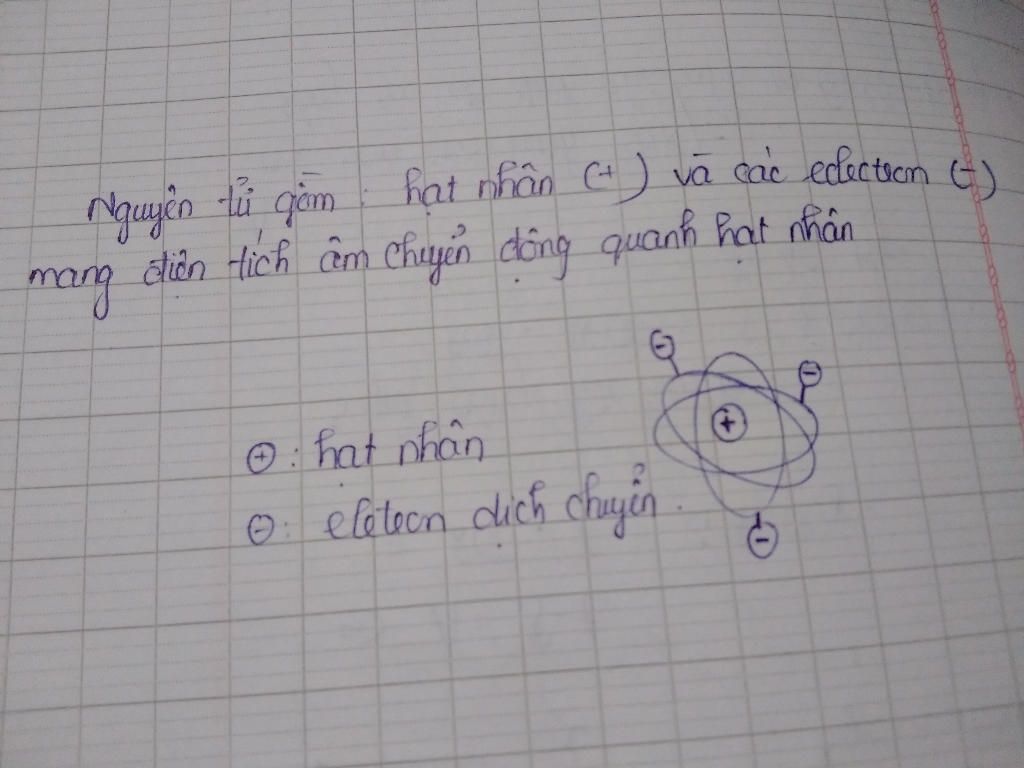 Nguyên tử gồm : hạt nhân (+) và các eclectron (-)
mang điện tích âm chuyển động quanh hạt nhân
⊖ ⊖
⊕
⊕ : hạt nhân
⊖ : eletron dịch chuyển .
⊖